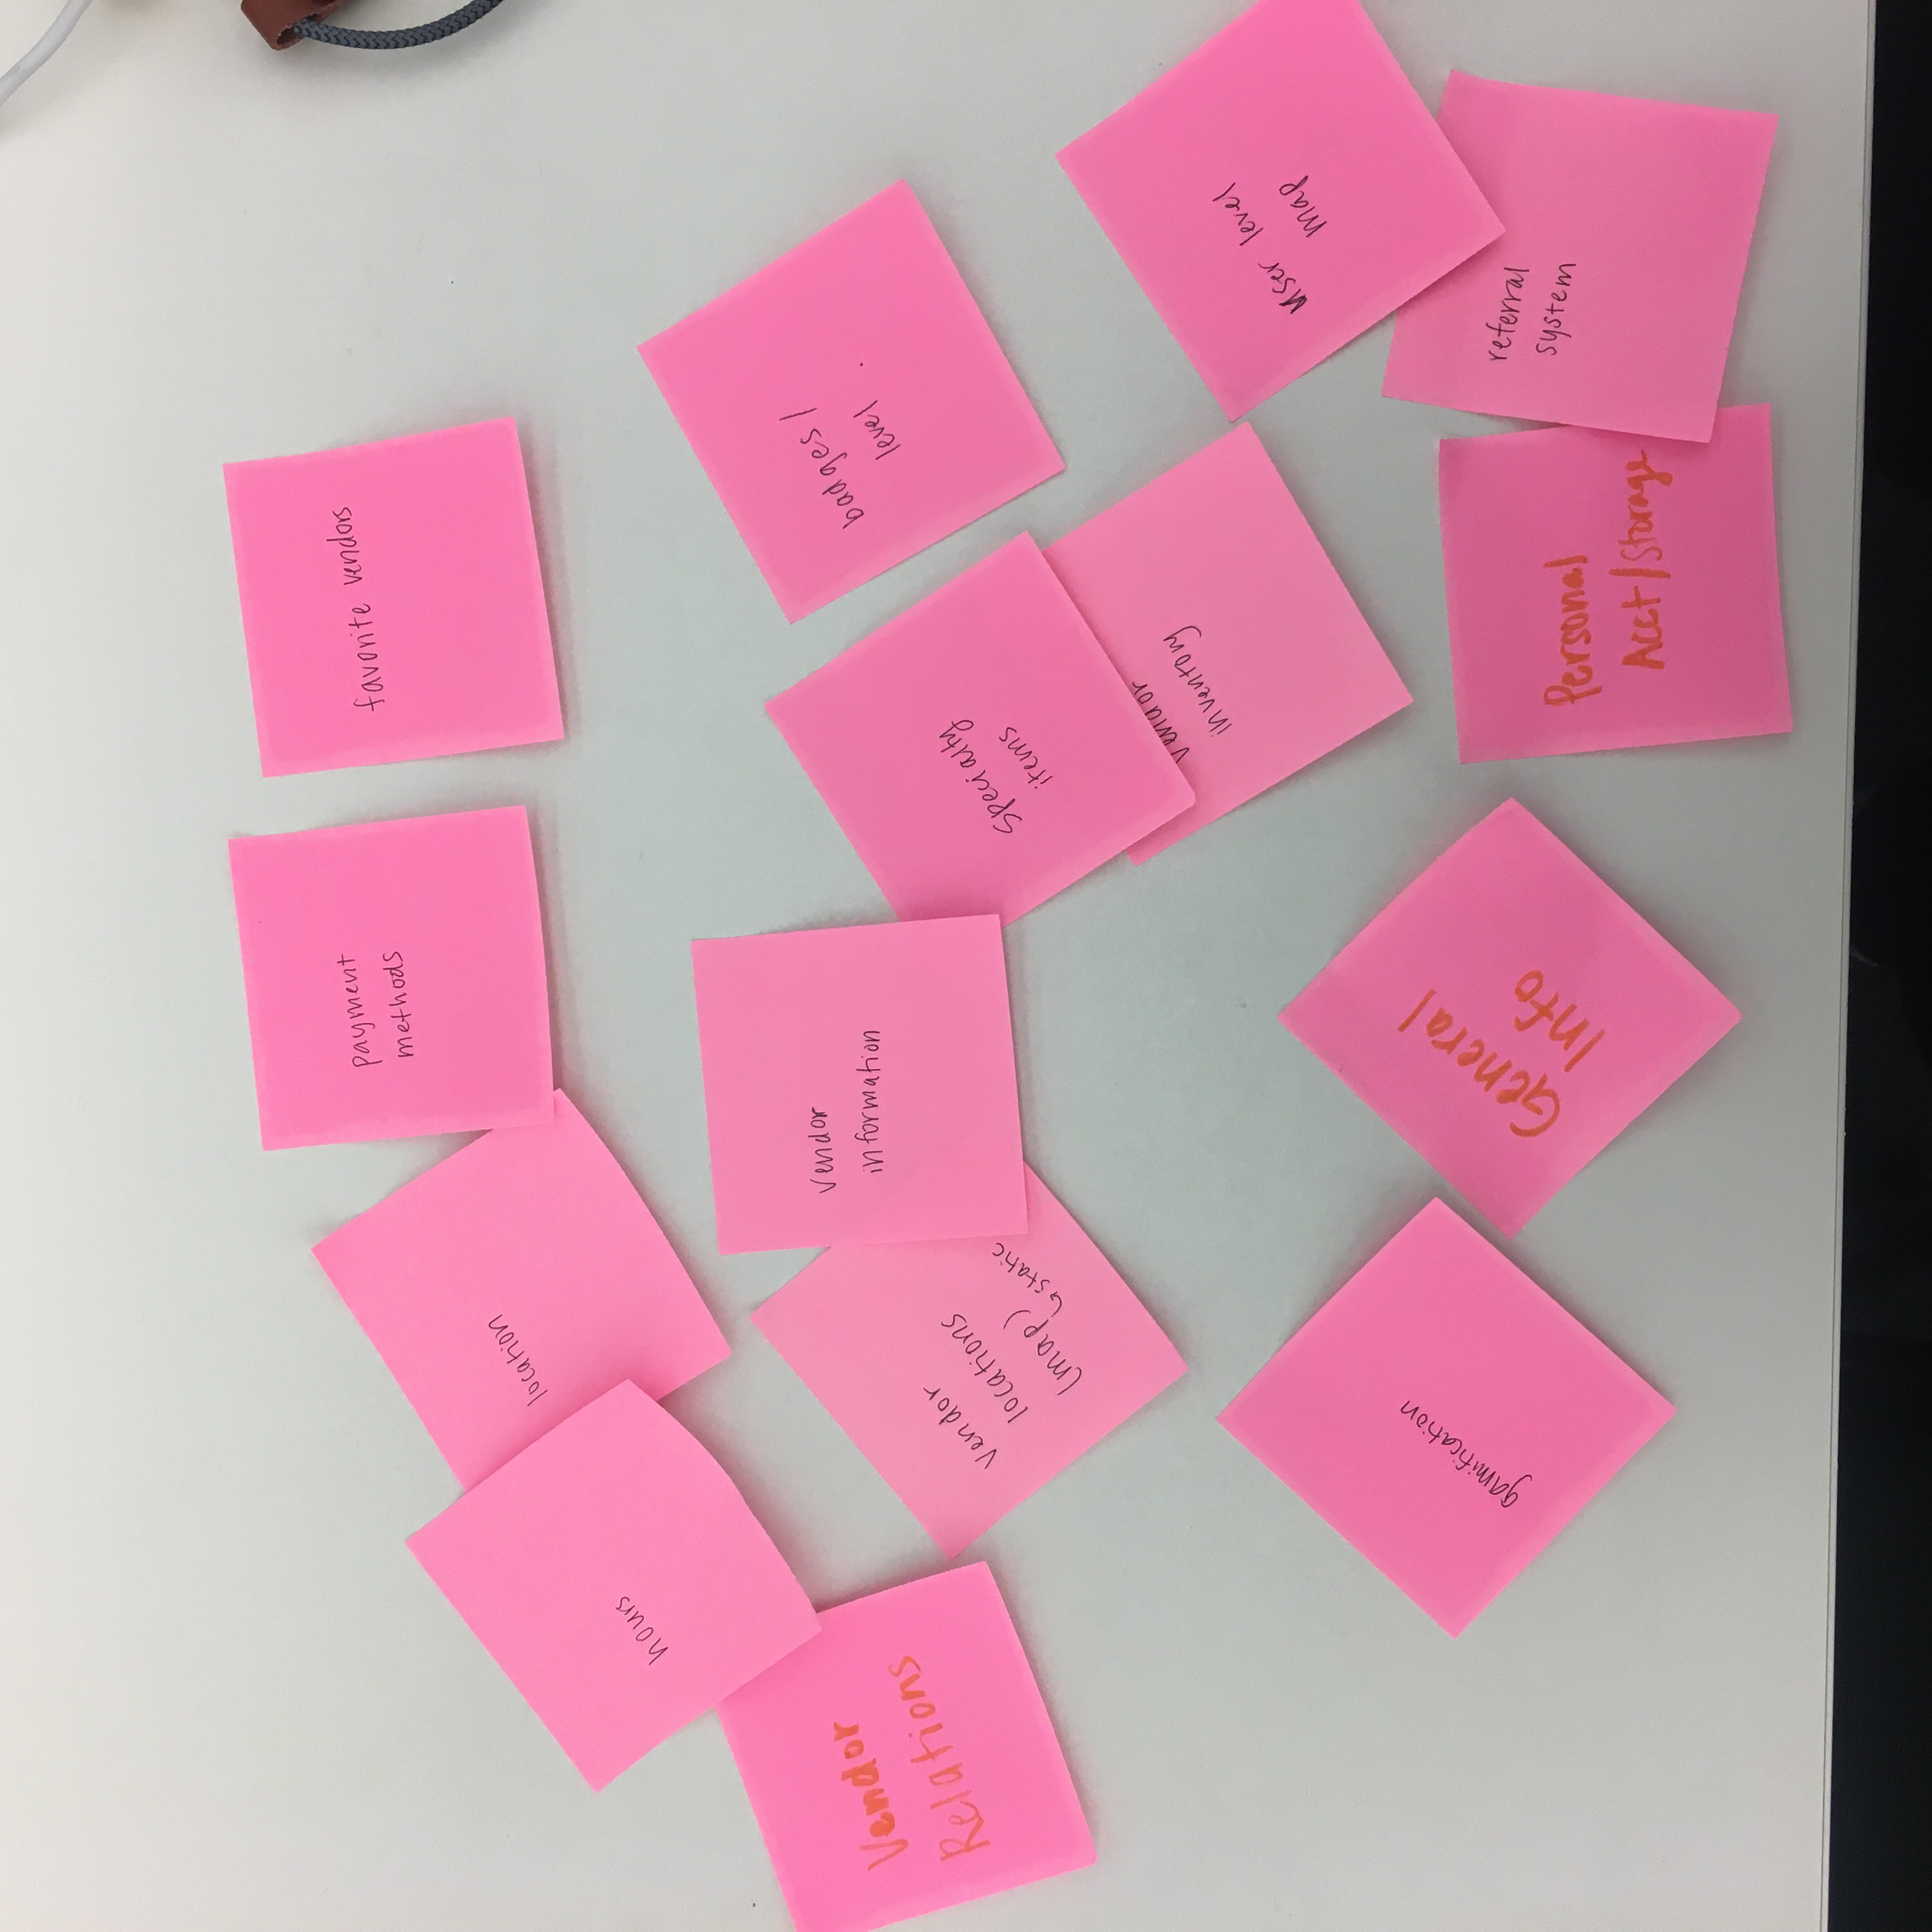 payment
methods
favorite vendors
location
hours
Vendor
Relations
vendor
locations
(map)
↳ static
vendor
information
specialty
items
badges /
level
vendor
inventory
user level
map
gamification
General
Info
Personal
Acct/Storage
referral
system